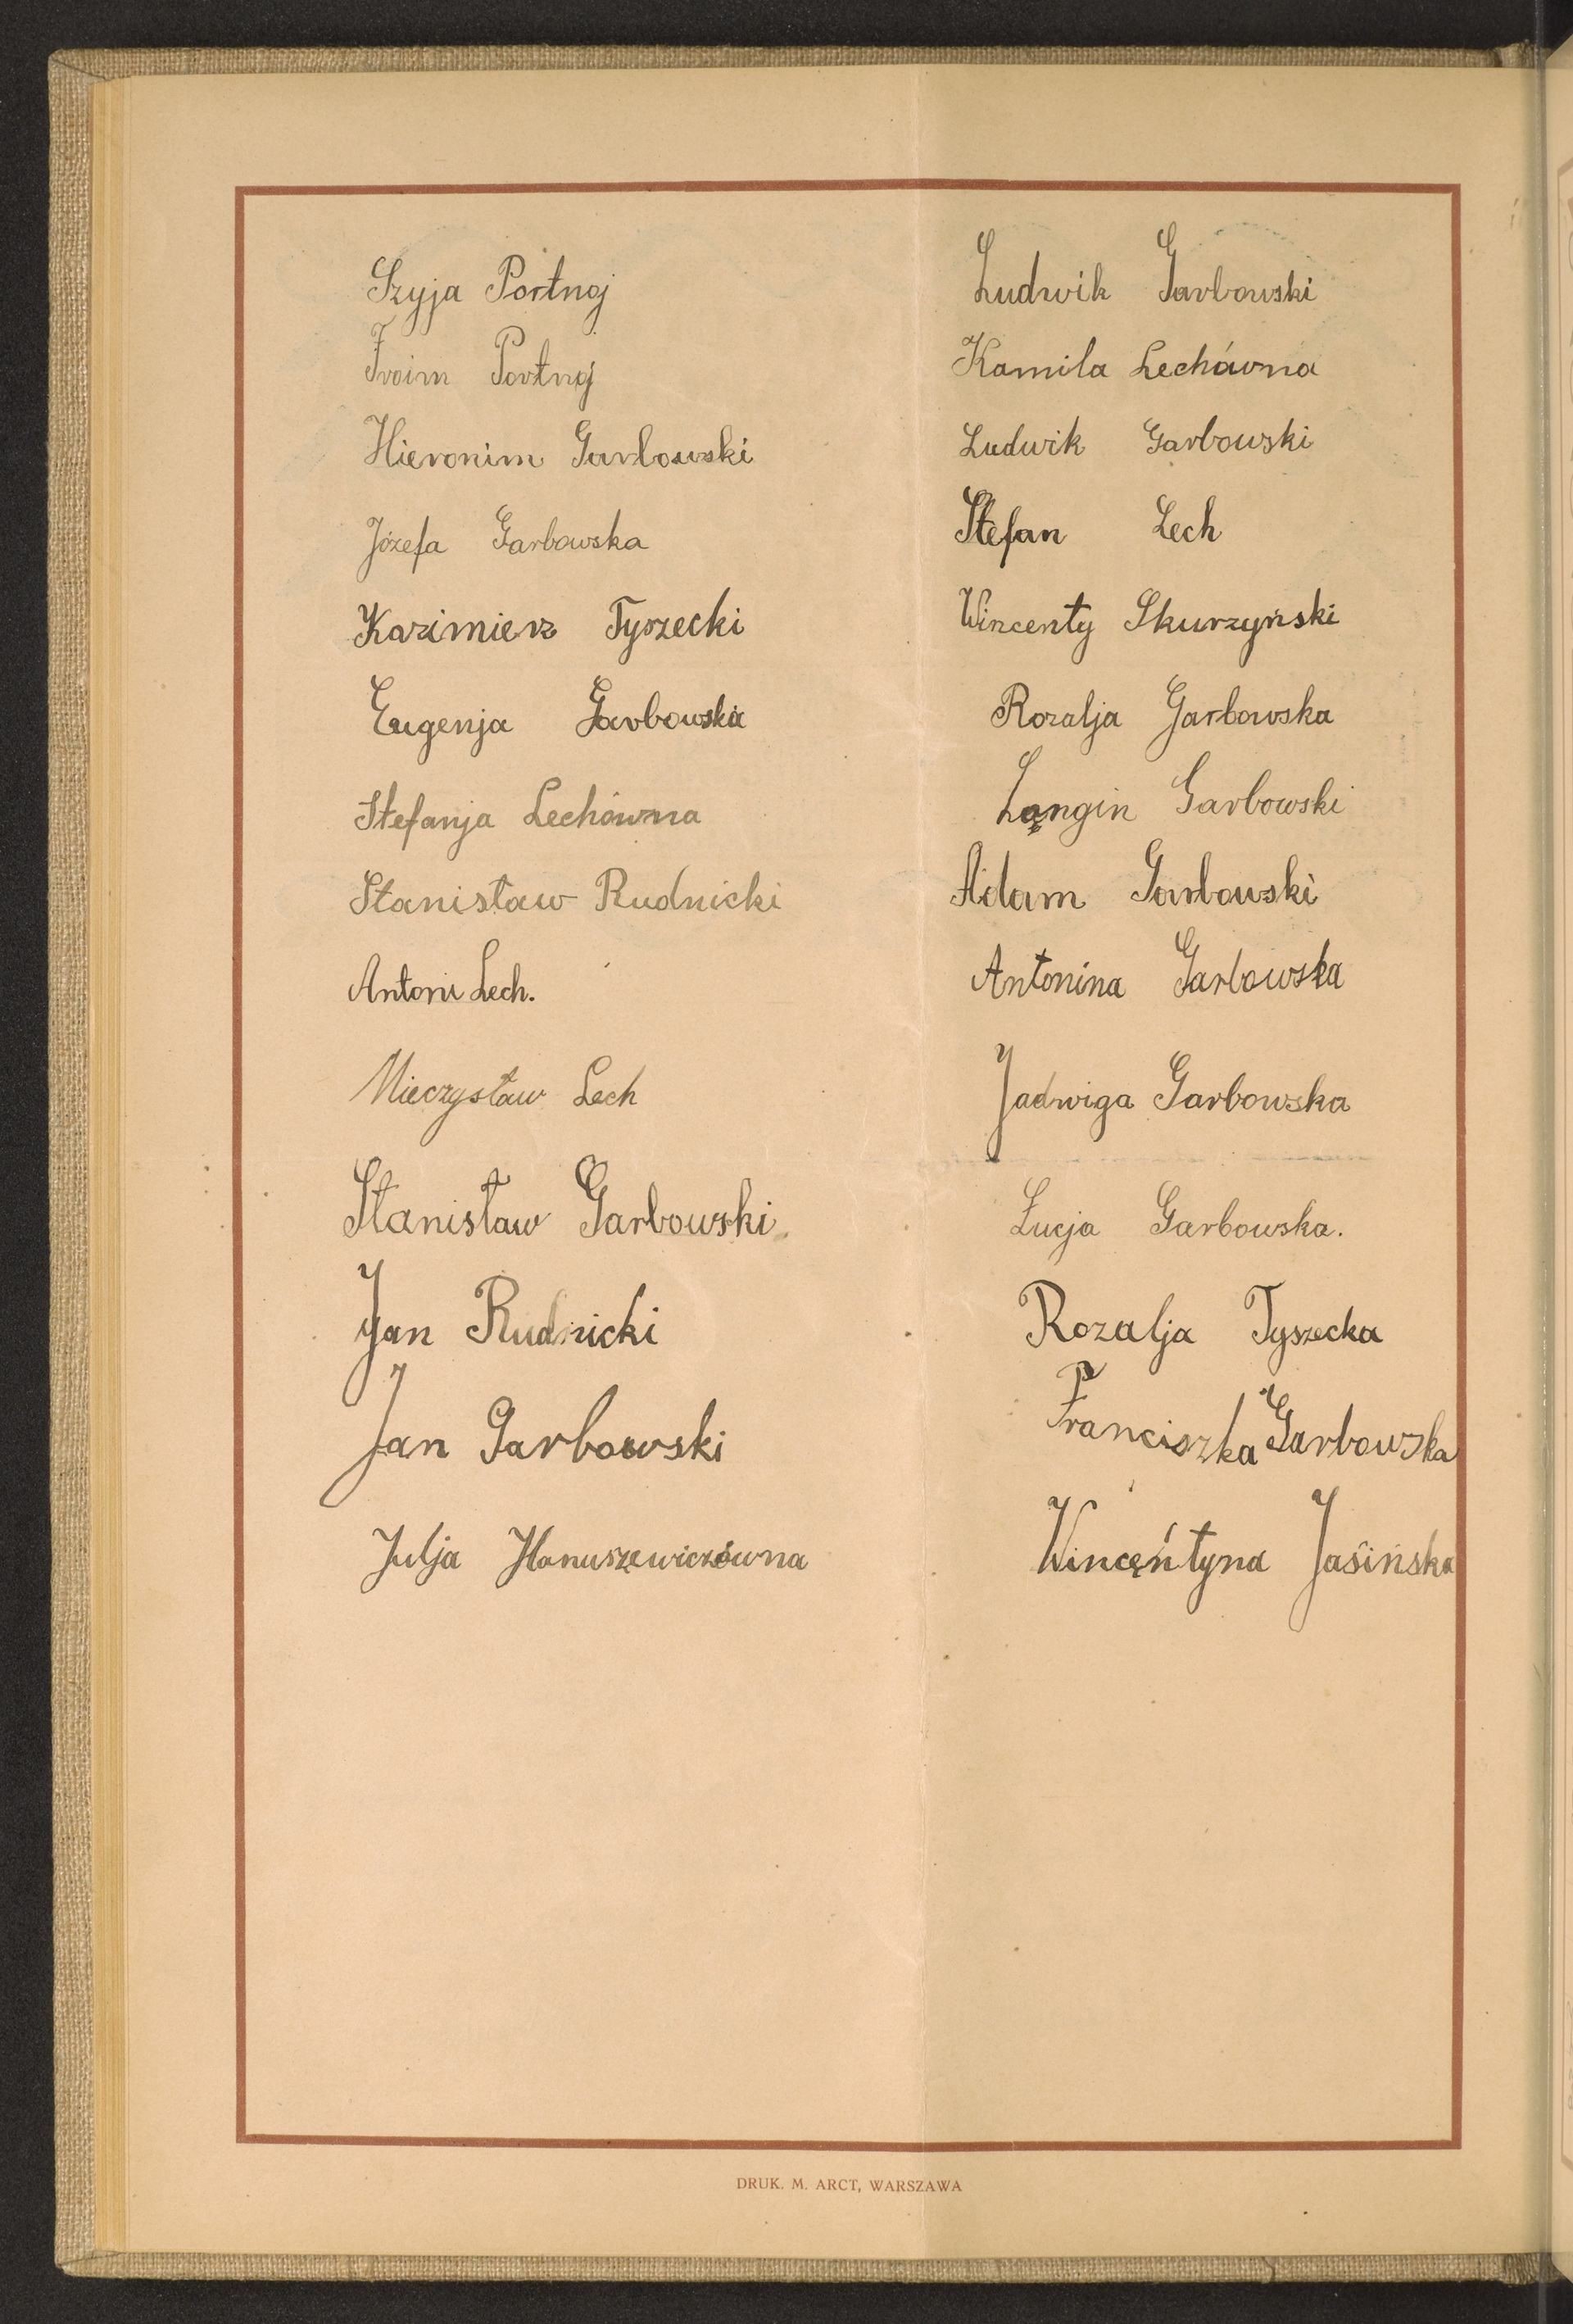 Szyja Portnoj
Froim Portnoj
Hieronim Garbowski
Józefa Garbowska
Kazimierz Tyszecki
Eugenja Garbowska
Stefanja Lechówna
Stanisław Rudnicki
Antoni Lech.
Mieczysław Lech
Stanisław Garbowski
Jan Rudnicki
Jan Garbowski
Julja Hanuszewiczówna
Ludwik Garbowski
Kamila Lechówna
Ludwik Garbowski
Stefan Lech
Wincenty Skurzyński
Rozalja Garbowska
Longin Garbowski
Adam Garbowski
Antonina Garbowska
Jadwiga Garbowska
Łucja Garbowska.
Rozalja Tyszecka
Franciszka Garbowska
Wincęńtyna Jasińska
DRUK. M. ARCT, WARSZAWA